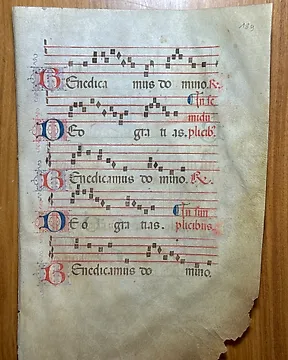 BEnedica mus do mino. R.
In se
midu
DEo gra ti as. plicib
BEnedicamus do mino. R.
In sim
DEo gra tias. plicibus
BEnedicamus do mino.